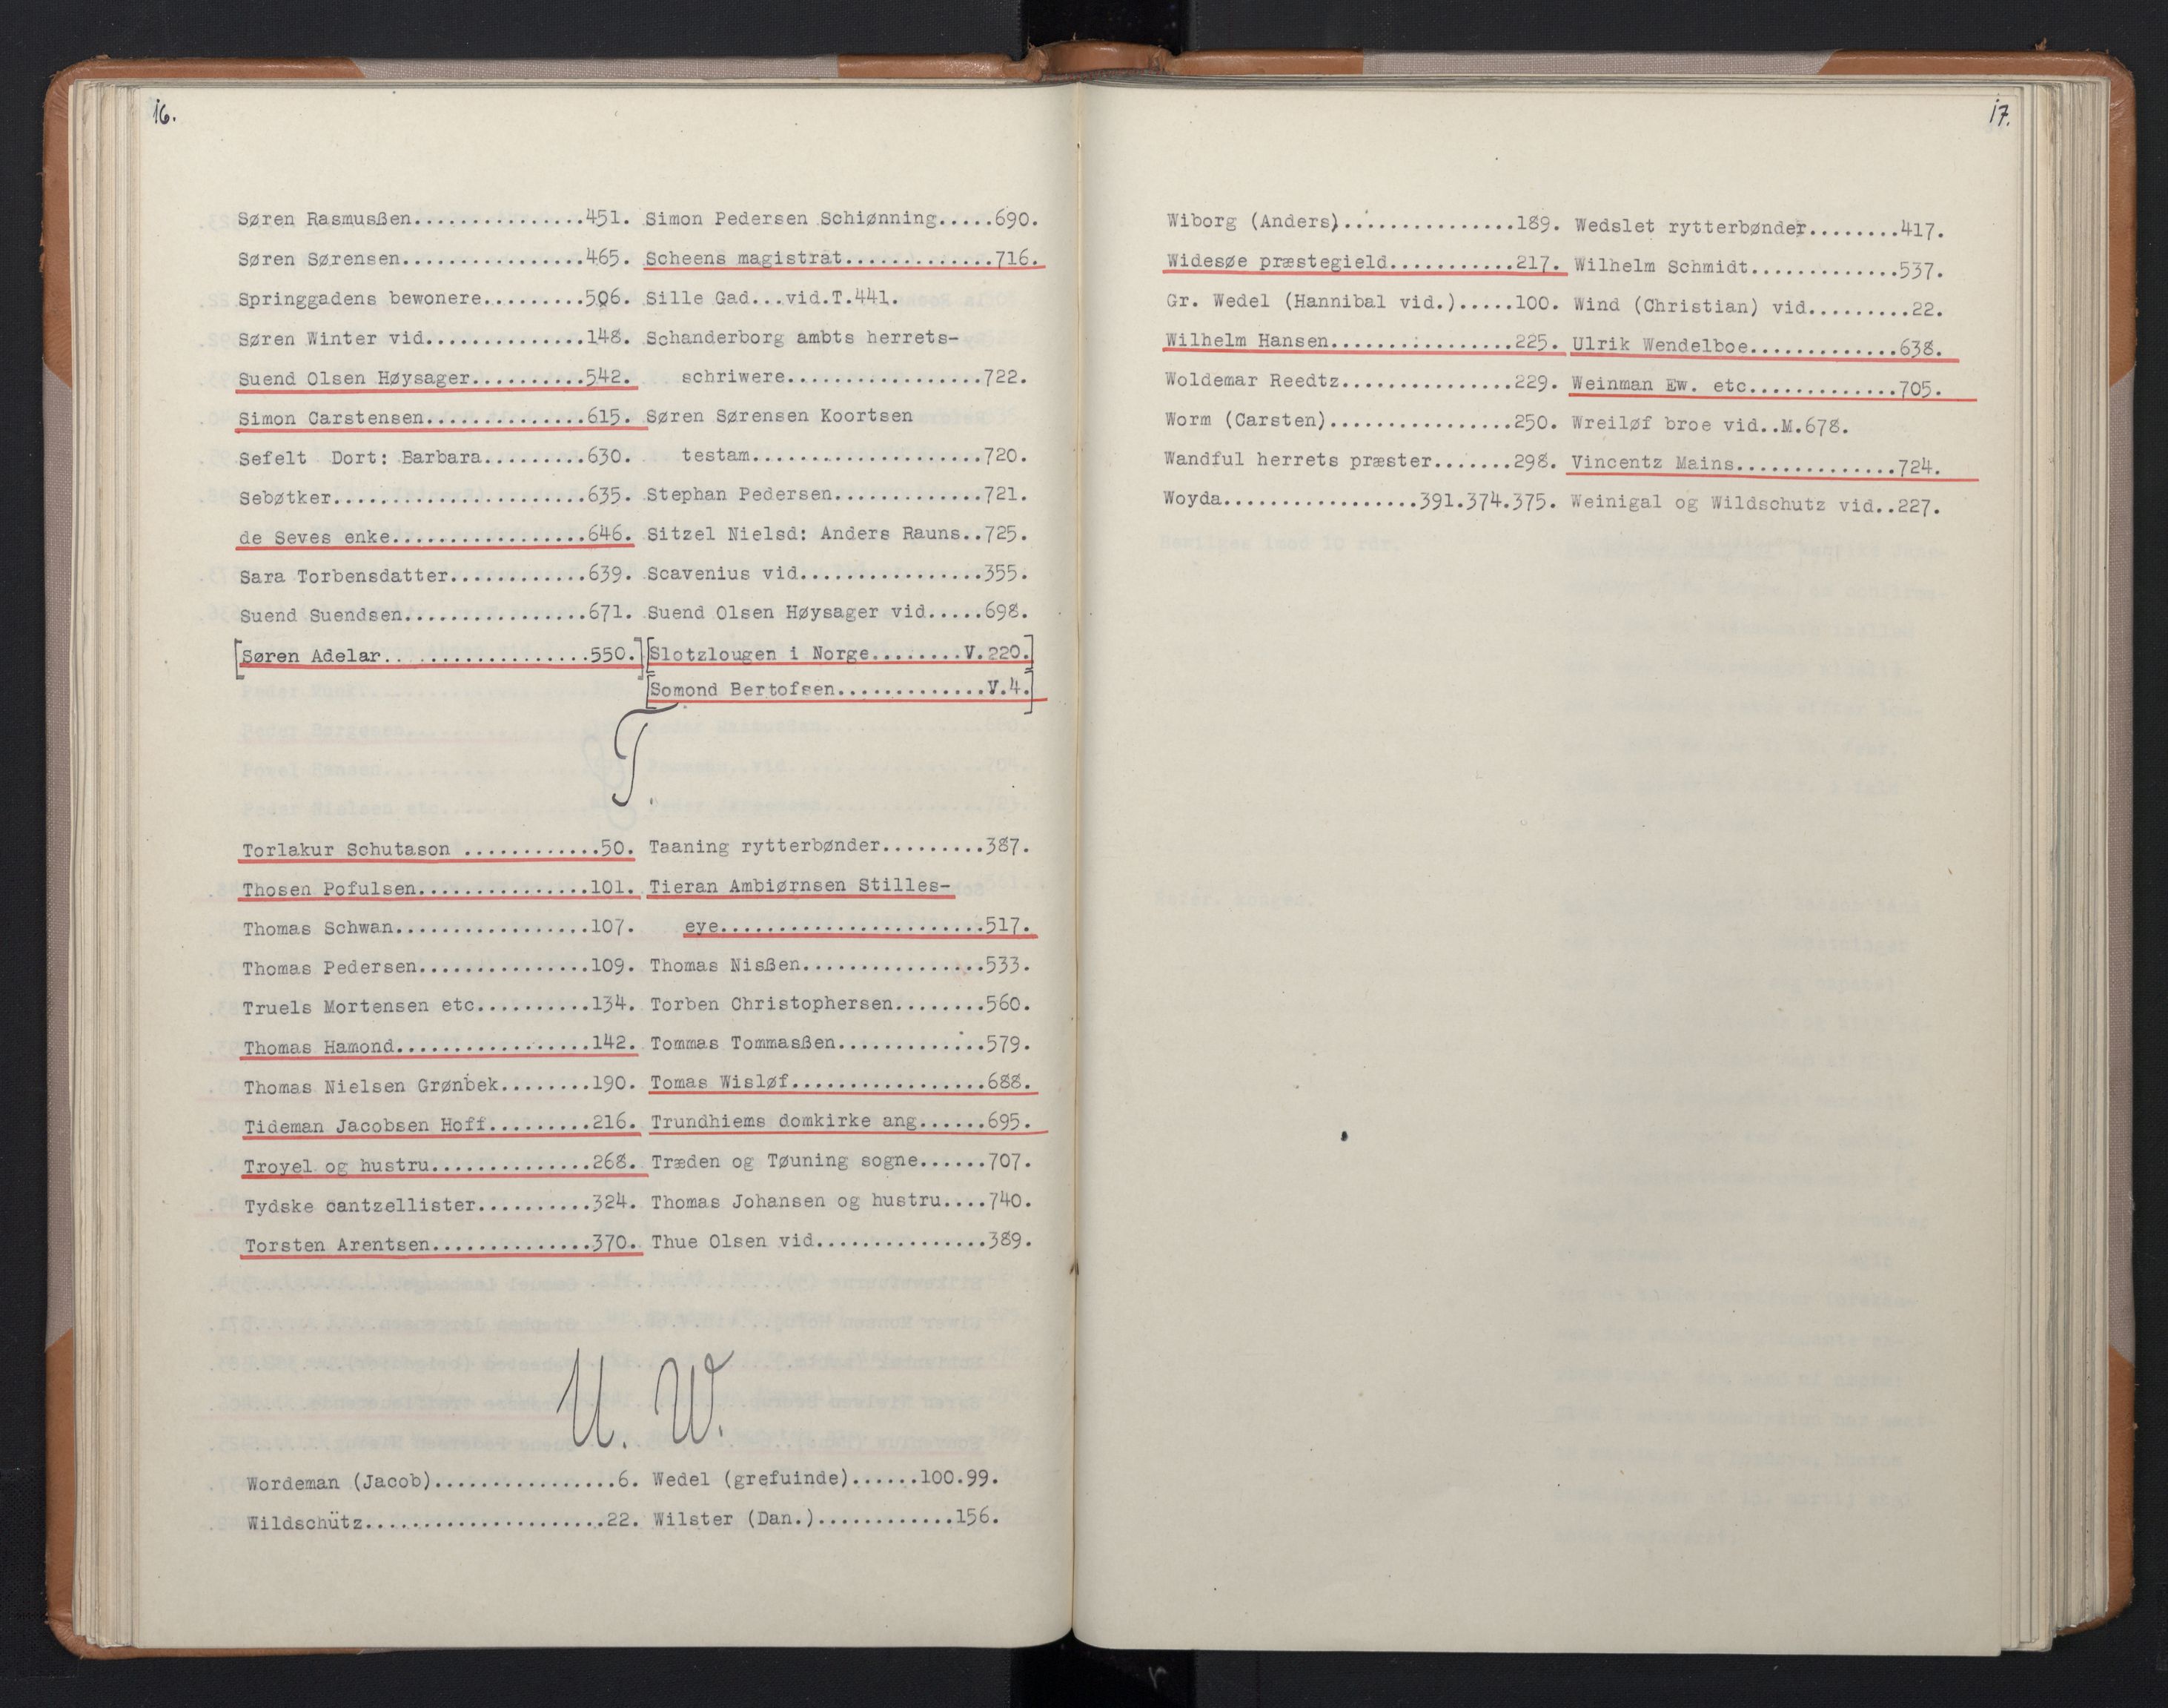 16.
Søren Rasmusßen...............451.
Søren Sørensen................465.
Springgadens bewonere.........506.
Søren Winter vid..............148.
Suend Olsen Høysager..........542.
Simon Carstensen..............615.
Sefelt Dort: Barbara.........630.
Sebøtker......................635.
de Seves enke.................646.
Sara Torbensdatter............639.
Suend Suendsen................671.
[Søren Adelar..................550.]
Simon Pedersen Schiønning.....690.
Scheens magistrat.............716.
Sille Gad...vid.T.441.
Schanderborg ambts herrets-
schriwere.................722.
Søren Sørensen Koortsen
testam....................720.
Stephan Pedersen.............721.
Sitzel Nielsd: Anders Rauns..725.
Scavenius vid................355.
Suend Olsen Høysager vid.....698.
[Slotzlougen i Norge........V.220.]
[Somond Bertofsen.............V.4.]
T.
Torlakur Schutason ............50.
Thosen Pofulsen...............101.
Thomas Schwan.................107.
Thomas Pedersen...............109.
Truels Mortensen etc..........134.
Thomas Hamond.................142.
Thomas Nielsen Grønbek........190.
Tideman Jacobsen Hoff.........216.
Troyel og hustru..............268.
Tydske cantzellister..........324.
Torsten Arentsen..............370.
Taaning rytterbønder.........387.
Tieran Ambiørnsen Stilles-
eye.......................517.
Thomas Nisßen................533.
Torben Christophersen........560.
Tommas Tommasßen.............579.
Tomas Wisløf.................688.
Trundhiems domkirke ang......695.
Træden og Tøuning sogne......707.
Thomas Johansen og hustru....740.
Thue Olsen vid...............389.
U. W.
Wordeman (Jacob)................6.
Wildschütz.....................22.
Wedel (grefuinde)......100.99.
Wilster (Dan.)............156.
17.
Wiborg (Anders)...............189.
Widesøe præstegield...........217.
Gr. Wedel (Hannibal vid.).....100.
Wilhelm Hansen................225.
Woldemar Reedtz...............229.
Worm (Carsten)................250.
Wandful herrets præster.......298.
Woyda.................391.374.375.
Wedslet rytterbønder........417.
Wilhelm Schmidt.............537.
Wind (Christian) vid.........22.
Ulrik Wendelboe.............638.
Weinman Ew. etc.............705.
Wreiløf broe vid..M.678.
Vincentz Mains..............724.
Weinigal og Wildschutz vid..227.